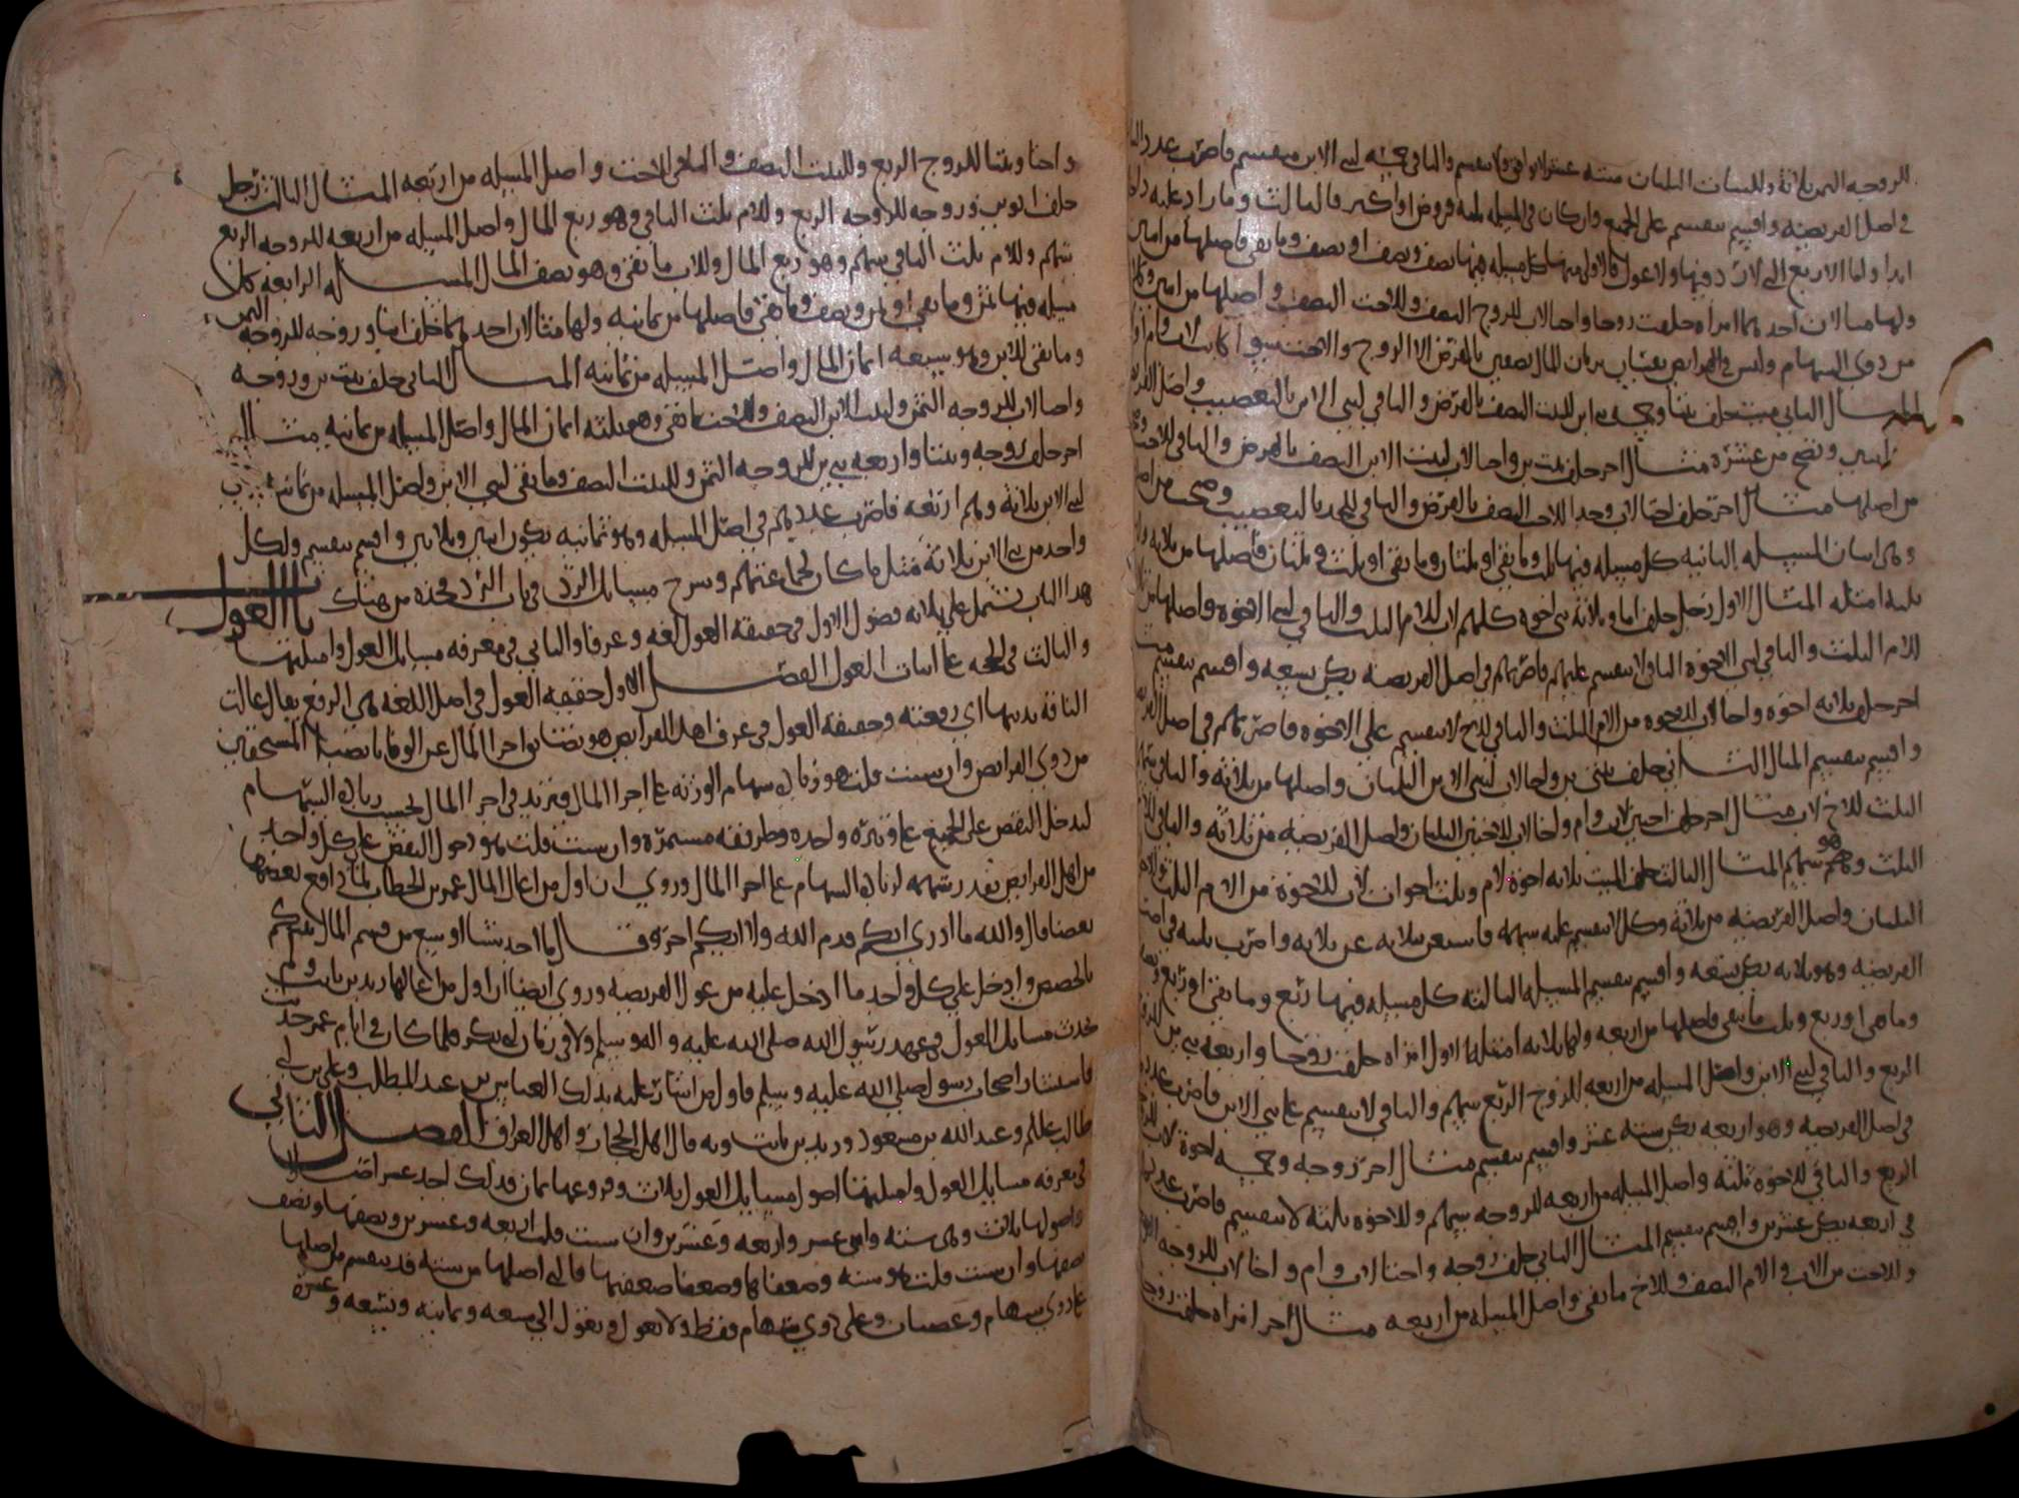 للزوجة الثمن ثلاثة وللبنات الثلثان ستة عشر والباقي خمسة لبني الابن فاضرب عدد
في اصل الفريضة واقسم تنقسم على الجميع وان كان في المسيله
ابدا واما الاربع التي لا رد فيها ولا عول فالاولى منها كل مسيله فيها نصف ونصف او نصف وما بقي فاصلها من اثنين
ولها مثالان احدهما امراة خلفت زوجا واختا لاب للزوج النصف وللاخت النصف واصلها من اثنين
من ذوي السهام وليس في الفرايض يرثان المال نصفين بالفرض الا الزوج والاخت سوا كانت لاب وام او
المثال الثاني ميت خلف بنتا وخمسة بني ابن للبنت النصف بالفرض والباقي لبني الابن بالتعصيب واصل
اثنين وتصح من عشرة مثال اخر خلف بنت بن واختا لاب لبنت الابن النصف بالفرض والباقي للاخت
من اصلها مثال اخر خلف اختا لاب وجدا للاخت النصف بالفرض والباقي للجد بالتعصيب
وهي اثنان المسيله الثانيه كل مسيله فيها ثلث وما بقي او ثلثان وما بقي او ثلث وثلثان فاصلها من ثلاثه
ثلثه امثله المثال الاول رجل خلف اما وثلاثة بني اخوه كلهم لاب للام الثلث والباقي لبني الاخوه واصلها
للام الثلث والباقي لبني الاخوه الباقي لا ينقسم عليهم فاضربهم في اصل الفريضه يكن تسعه واقسم تنقسم
اخر خلف ثلاثه اخوه واخا لاب للاخوه من الام الثلث والباقي للاخ لا ينقسم على الاخوه فاضربهم في اصل
واقسم تنقسم المثال الثاني خلف بنتي بن واخا لاب لبنتي الابن الثلثان واصلها من ثلاثه والباقي
الثلث للاخ لاب مثال اخر خلف اختين لاب وام واخا لاب للاختين الثلثان واصل الفريضه من ثلاثه والباقي
الثلث وهو سهم المثال الثالث خلف الميت ثلاثه اخوة لام وثلث اخوات لاب للاخوة من الام الثلث
الثلثان واصل الفريضه من ثلاثة وكل لا ينقسم عليه سهمه فاستغن بثلاثه عن ثلاثه واضرب ثلثه في
الفريضه وهو ثلاثه يكن تسعه واقسم تنقسم المسيله الثالثه كل مسيله فيها ربع وما بقي او ربع
وما بقي او ربع وثلث ما بقي فاصلها من اربعه ولها ثلاثه امثله الاول امراه خلفت زوجا واربعه بني بن
الربع والباقي لبني الابن واصل المسيله من اربعه للزوج الربع سهم والباقي لا ينقسم على بني الابن فاضرب عدد
في اصل الفريضه وهو اربعه يكن سته عشر واقسم تنقسم مثال اخر زوجه وخمسه اخوة لاب
الربع والباقي للاخوة ثلثه واصل المسيله من اربعه للزوجه سهم وللاخوه ثلثه لا ينقسم فاضرب
في اربعه يكن عشرين واقسم تنقسم المثال الثاني خلف زوجه واختا لاب وام واخا لاب للزوجه
وللاخت من الاب والام النصف وللاخ ما بقي واصل المسيله من اربعه مثال اخر امراه خلفت زوجا
واختا وبنتا للزوج الربع وللبنت النصف والباقي للاخت واصل المسيله من اربعه المثال الثالث رجل
خلف ابوين وزوجه للزوجه الربع وللام ثلث الباقي وهو ربع المال واصل المسيله من اربعه للزوجه الربع
سهم وللام ثلث الباقي سهم وهو ربع المال وللاب ما بقي وهو نصف المال المسيله الرابعه كل
مسيله فيها ثمن وما بقي او ثمن ونصف وما بقي فاصلها من ثمانيه ولها مثالان احدهما خلف ابنا وزوجه للزوجة الثمن
وما بقي للابن وهو سبعه اثمان المال واصل المسيله من ثمانيه المثال الثاني خلف بنت بن وزوجه
واختا لاب للزوجه الثمن ولبنت الابن النصف وللاخت ما بقي وهو ثلثه اثمان المال واصل المسيله من ثمانيه مثال
اخر خلف زوجه وبنتا واربعه بني بن للزوجه الثمن وللبنت النصف وما بقي لبني الابن واصل المسيله من ثمانيه
لبني الابن ثلاثة وهم اربعه فاضرب عددهم في اصل المسيله وهو ثمانيه يكون اثنين وثلاثين واقسم تنقسم ولكل
واحد من بني الابن ثلاثة مثل ما كان لجماعتهم وشرح مسايل الرد في باب الرد فخذه من هناك باب العول
هذا الباب يشتمل على ثلاثه فصول الاول في حقيقة العول لغه وعرفا والثاني في معرفه مسايل العول وامثلتها
والثالث في الحجه على اثبات العول الفصل الاول حقيقه العول في اصل اللغه هي الرفع يقال عالت
الناقة بذنبها اي رفعته وحقيقة العول في عرف اهل الفرايض هو نقصان اجزا المال عن الوفا بانصباء المستحقين
من ذوي الفرايض وان شئت قلت هو زياده سهام الورثه على اجزا المال فتزيد في اجزا المال بحسب زياده السهام
ليدخل النقص على الجميع على وتيرة واحده وطريقه مستمرة وان شئت قلت هو دخول النقص على كل واحد
من اهل الفرايض بقدر سهمه لزياده السهام على اجزا المال وروي ان اول من اعال المال عمر بن الخطاب لما دافع بعضها
بعضا قال والله ما ادري ايكم قدم الله ولا ايكم اخر وقال ما اجد شيا اوسع من قسم المال بينكم
بالحصص وادخل على كل واحد ما ادخل عليه من عول الفريضه وروي ايضا ان اول من اعالها زيد بن ثابت ولم
تحدث مسايل العول في عهد رسول الله صلى الله عليه واله وسلم ولا في زمان ابي بكر فلما كان في ايام عمر حدثت
فاستشار اصحاب رسول الله صلى الله عليه وسلم فاول من اشار عليه بذلك العباس بن عبد المطلب وعلي بن ابي
طالب عليلم وعبد الله بن مسعود وزيد بن ثابت وبه قال اهل الحجاز واهل العراق الفصل الثاني
في معرفه مسايل العول وامثلتها اصول مسايل العول ثلاث وفروعها ثمان فذلك احد عشر اصلا
واصولها ثلاث وهي سته واثني عشر واربعه وعشرين وان شئت قلت اربعه وعشرين ونصفها ونصف
نصفها وان شئت قلت هو سته وضعفاها وضعفا ضعفها فالتي اصلها من سته قد تنقسم من اصلها
على ذوي سهام وعصبات وعلى ذوي سهام فقط ولا تعول وتعول الى سبعه وثمانيه وتسعه وعشرة